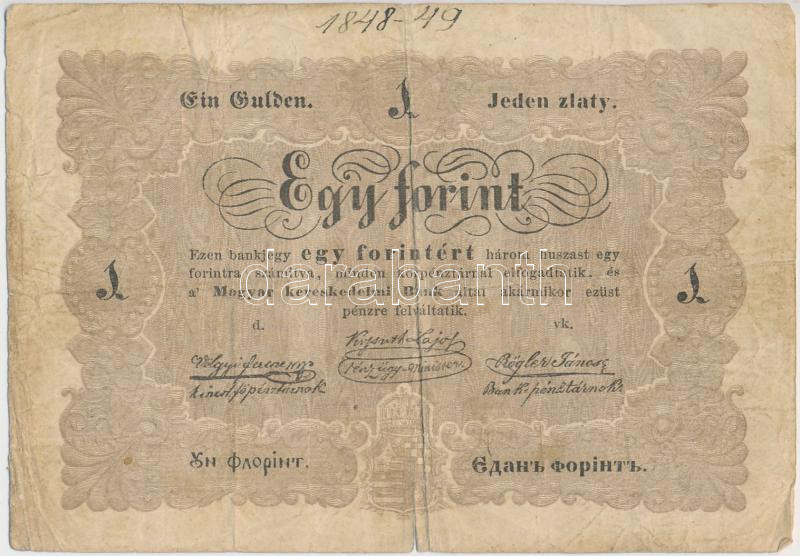 1848-49
Ein Gulden. 1 Jeden zlaty.
Egy forint
Ezen bankjegy egy forintért három huszast egy
forintra számítva, minden közpénztárnál elfogadtatik, és
1 a' Magyar kereskedelmi Bank által akármikor ezüst 1
pénzre felváltatik.
d. vk.
Kossuth Lajos
Völgyi Ferenc Rögler János
pénzügyminister
kincs. főpénztárnok Bank-pénztárnok
Ун флорінт. Єданъ форінтъ.
darabanth